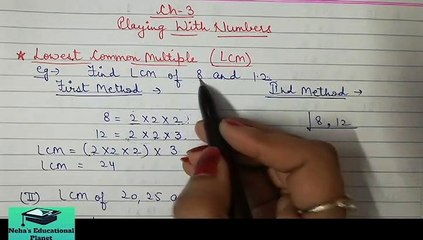 Ch-3
Playing With Numbers
* Lowest Common Multiple (LCM)
eg → Find LCM of 8 and 12.
First Method →
IInd Method →
8 = 2 × 2 × 2
12 = 2 × 2 × 3
8, 12
LCM = (2 × 2 × 2) × 3
LCM = 24
(II) LCM of 20, 25
Neha's Educational
Planet